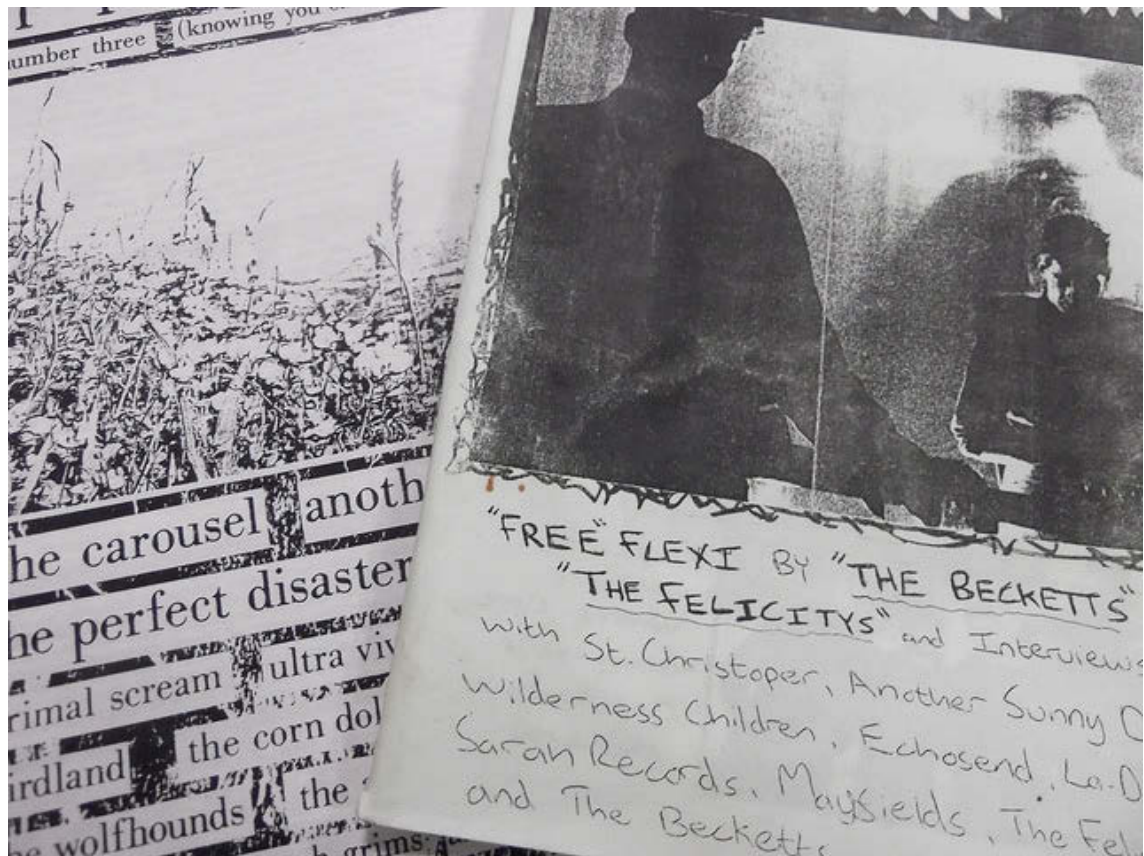 number three (knowing you
the carousel anoth
the perfect disaster
primal scream ultra viv
birdland the corn dol
the wolfhounds the
grims
"FREE" FLEXI BY "THE BECKETTS"
"THE FELICITYS" and Interviews
with St. Christoper, Another Sunny D
Wilderness Children, Echosend, La-D
Sarah Records, Mayfields, The Fel
and The Becketts